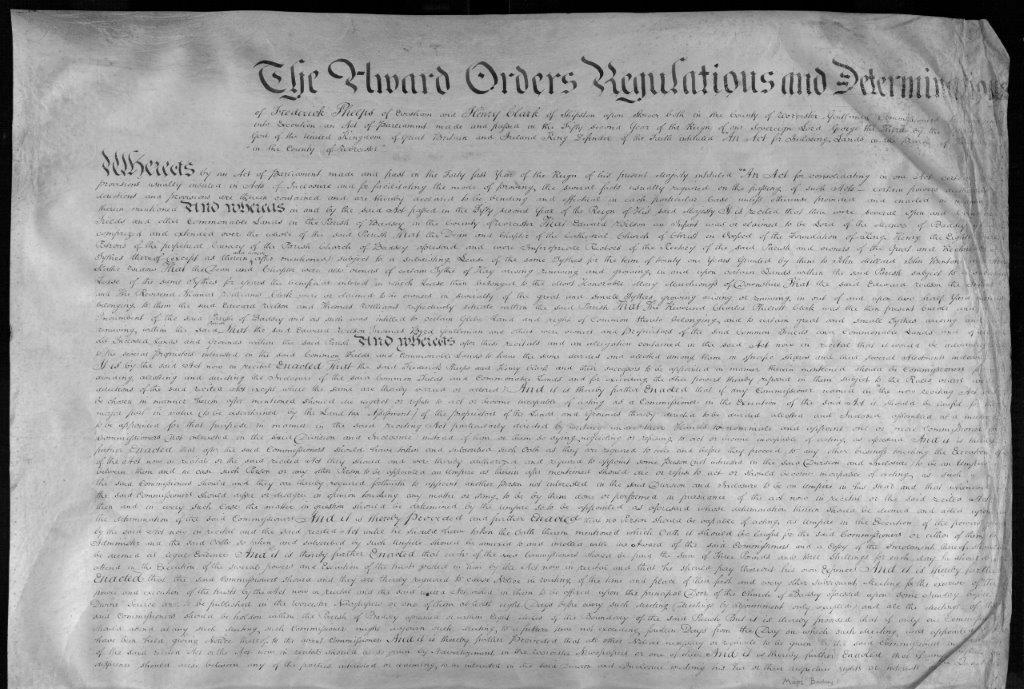 The Award Orders Regulations and Determinations
of Frederick Phelps of Evesham and Henry Clark of Shipston upon Stower both in the County of Worcester Gentlemen Commissioners
into Execution an Act of Parliament made and passed in the Fifty second Year of the Reign of our Sovereign Lord George the Third by the
God of the United Kingdom of Great Britain and Ireland King Defender of the Faith intituled "An Act for Inclosing Lands in the Parish of
"in the County of Worcester"
Whereas by an Act of Parliament made and past in the Forty first Year of the Reign of his present Majesty intituled "An Act for consolidating in one Act certain
provisions usually inserted in Acts of Inclosure and for facilitating the mode of proving the several facts usually required on the passing of such Acts" certain powers
directions and provisions are therein contained and are thereby declared to be binding and effectual in each particular Case unless otherwise provided and enacted
therein mentioned And whereas in and by the said Act passed in the Fifty second Year of the Reign of His said Majesty It is recited that there were several Open and
Fields and other Commonable Lands in the Parish of Badsey in the County of Worcester That Edward Wilson an Infant was or claimed to be Lord of the Manor of Badsey
comprized and extended over the whole of the said Parish That the Dean and Chapter of the Cathedral Church of Christ in Oxford of the Foundation of King Henry the Eighth
Patrons of the perpetual Curacy of the Parish Church of Badsey aforesaid and were Impropriate Rectors of the Rectory of the said Parish and owners of the Great
Tythes thereof (except as therein after mentioned) subject to a subsisting Lease of the same Tythes for the term of twenty one Years Granted by them to John
That the Dean and Chapter were also owners of certain Tythes of Hay arising renewing and growing in and upon certain Lands within the said Parish subject to
Lease of the same Tythes for years the beneficial interest in which Lease then belonged to the That the said Edward Wilson the Infant
and the Reverend Thomas Williams Clerk were or claimed to be owners in severalty of the great and small Tythes growing arising or renewing in out of and upon
belonging to them the said Edward Wilson and Thomas Williams respectively situate within the said Parish That the Reverend Charles Phillott Clerk was the then present Curate and
Incumbent of the said Parish of Badsey and as such was intitled to certain Glebe Land and rights of Common thereto belonging, and to certain great and small Tythes arising and
renewing within the said Parish That the said Edward Wilson Thomas Byrd Gentleman and others were owners and Proprietors of the said Common Fields and Commonable Lands and of
old Inclosed Lands and Grounds within the said Parish And whereas after these recitals and an allegation contained in the said Act now in recital that it would be
to the several Proprietors interested in the said Common Fields and Commonable Lands to have the same divided and allotted among them in specific shares and their several Allotments inclosed
It is by the said Act now in recital Enacted that the said Frederick Phelps and Henry Clark and their successors to be appointed in manner therein mentioned should be Commissioners
dividing allotting and inclosing the said common Fields and Commonable Lands and for executing the other powers thereby reposed in them subject to the Rules orders and
directions of the said recited Act except where the same are thereby varied or altered And it is thereby further Enacted that if any Commissioner named in the now reciting Act
be chosen in manner therein after mentioned should die neglect or refuse to act or become incapable of acting as a Commissioner in the Execution of the said Act it should be lawful for the
major part in value (to be ascertained by the Land tax Assessment) of the Proprietors of the Lands and Grounds thereby directed to be divided allotted and Inclosed
to be appointed for that purpose in manner in the said reciting Act particularly directed by writing under their Hands to nominate and appoint one or more Commissioner or
Commissioners (not interested in the said Division and Inclosure) instead of him or them so dying neglecting or refusing to act or become incapable of acting as aforesaid And it is thereby
further Enacted that after the said Commissioners should have taken and subscribed such Oath as they are required to take and before they proceed to any other business touching the Execution
of the Act now in recital or the said recited Act they should and were thereby authorized and required to appoint some Person (not interested in the said Division and Inclosure) to be an Umpire
between them and in case such Person or any other Person to be appointed an Umpire as therein after mentioned should die or refuse to act or should become incapable of acting as such
the said Commissioners should and they are thereby required forthwith to appoint another Person not interested in the said Division and Inclosure to be an Umpire in his stead and that whenever
the said Commissioners should differ or disagree in opinion touching any matter or thing to be by them done or performed in pursuance of the Act now in recital or the said recited Act
then and in every such Case the matter in question should be determined by the Umpire so to be appointed as aforesaid whose determination therein should be deemed and acted upon
the determination of the said Commissioners And it is thereby Provided and further Enacted that no Person should be capable of acting as Umpire in the Execution of the powers
by the said Act now in recital and the said recited Act until he should have taken the Oath therein mentioned which Oath it should be lawful for the said Commissioners or either of them to
administer and the said Oath so taken and subscribed by such Umpire should be annexed to and enrolled with the Award of the said Commissioners and a Copy of the Inrolment thereof should
be deemed as legal Evidence And it is thereby further Enacted that each of the said Commissioners should be paid the sum of Three Pounds and three Shillings for each day he should
attend in the Execution of the several powers and Execution of the trusts reposed in him by the Act now in recital and that he should pay thereout his own Expences And it is thereby further
Enacted that the said Commissioners should and they are thereby required to cause Notice in writing of the time and place of their first and every other subsequent Meeting for the exercise of the
power and execution of the trusts by the Act now in recital and the said recited Act vested in them to be affixed upon the principal Door of the Church of Badsey aforesaid upon some Sunday before
Divine Service and to be published in the Worcester Newspapers or one of them at least eight Days before every such Meeting (Meetings by adjournment only excepted) and all the Meetings of the
said Commissioners should be held within the Parish of Badsey aforesaid or within eight miles of the Boundary of the said Parish And it is thereby provided that if only one Commissioner
should attend at any such Meeting such Commissioner might adjourn such Meeting to a future time not exceeding fourteen Days from the Day on which such Meeting was appointed to
have been held giving Notice thereof to the absent Commissioner And it is thereby further Provided that all other Notices necessary or requisite to be given by the said Commissioners
of the said recited Act or the Act now in recital should be so given by Advertisement in the Worcester Newspapers or one of them And it is thereby further Enacted that
difference should arise between any of the parties interested or claiming to be interested in the said Division and Inclosure touching his her or their respective rights or interests
Map: Badsey